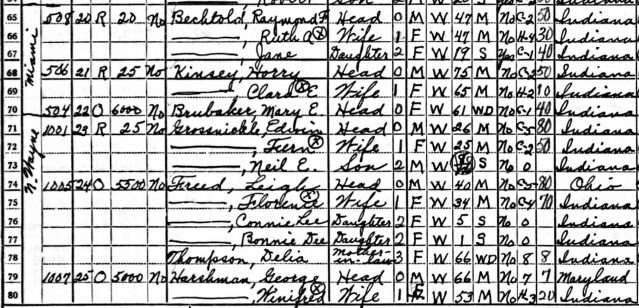 65 508 20 R 20 No Bechtold, Raymond F Head 0 M W 47 M No C-2 50 Indiana
66 ———, Ruth A ⓧ Wife 1 F W 47 M No H-4 30 Indiana
67 ———, Jane Daughter 2 F W 19 S Yes C-1 40 Indiana
Miami
68 506 21 R 25 No Kinsey, Harry Head 0 M W 75 M No C-3 50 Indiana
69 ———, Clara E. ⓧ Wife 1 F W 65 M No H-2 10 Indiana
70 504 22 O 6000 No Brubaker, Mary E. Head 0 F W 61 WD No C-1 40 Indiana
71 1001 23 R 25 No Grossnickle, Edwin Head 0 M W 26 M No C-5 80 Indiana
N. Wayne
72 ———, Fern ⓧ Wife 1 F W 25 M No C-2 50 Indiana
73 ———, Neil E. Son 2 M W S No 0 Indiana
74 1005 24 O 5500 No Freed, Leigh Head 0 M W 40 M No C-5 80 Ohio
75 ———, Florence ⓧ Wife 1 F W 34 M No C-4 70 Indiana
76 ———, Connie Lee Daughter 2 F W 5 S No 0 Indiana
77 ———, Bonnie Dee Daughter 2 F W 1 S No 0 Indiana
78 Thompson, Delia Mother in law 3 F W 66 WD No 8 8 Indiana
79 1007 25 O 5000 No Harshman, George Head 0 M W 66 M No 7 7 Maryland
80 ———, Winifred ⓧ Wife 1 F W 53 M No H-3 20 Indiana